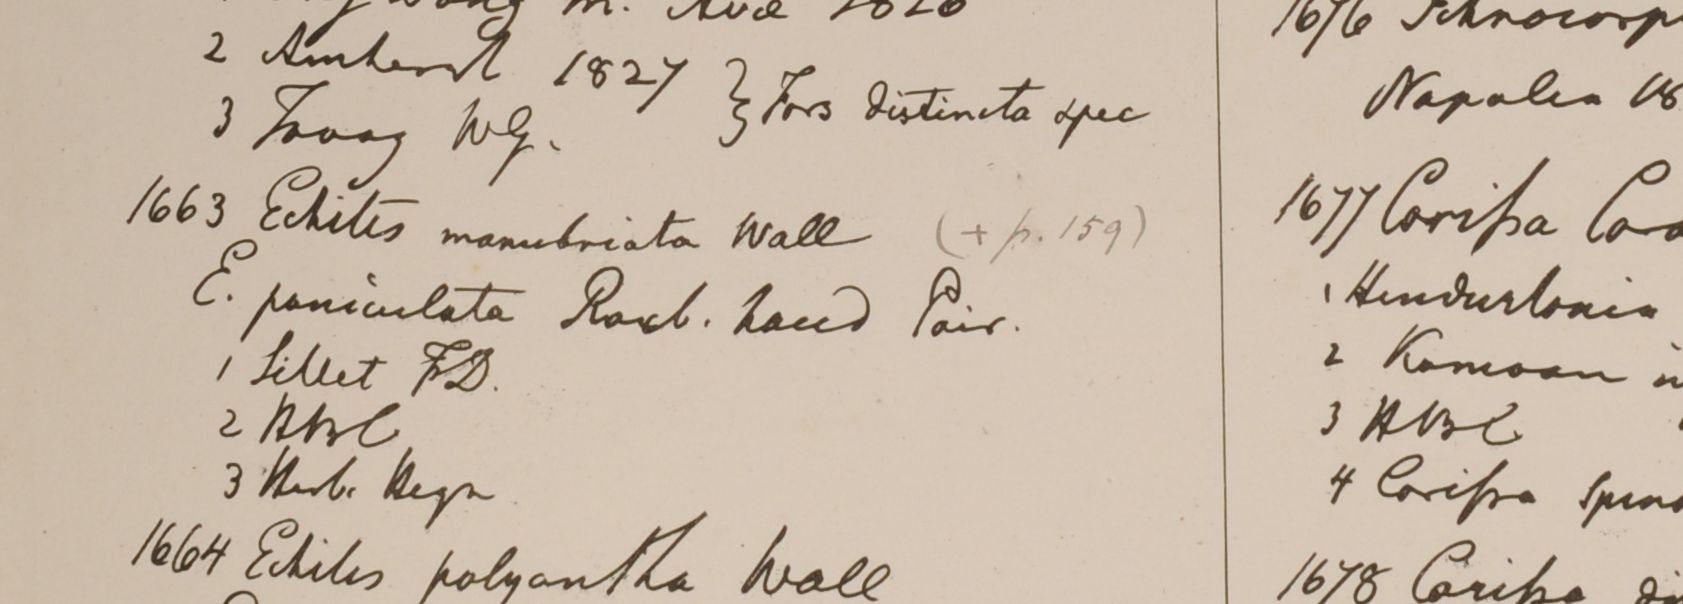 m. Ava 1826
2 Amherst 1827 } Fors distincta spec
3 Tavoy WG.
1663 Echites manubriata Wall (+ p. 159)
E. paniculata Roxb. haud Poir.
1 Sillet FD.
2 HBC
3 Herb. Heyn
1664 Echites polyantha Wall
1676
Napalia 18
1677 Carissa Cara
1 Hindustania
2 Kamoan
3 HBC
4 Carissa spin
1678 Carissa di